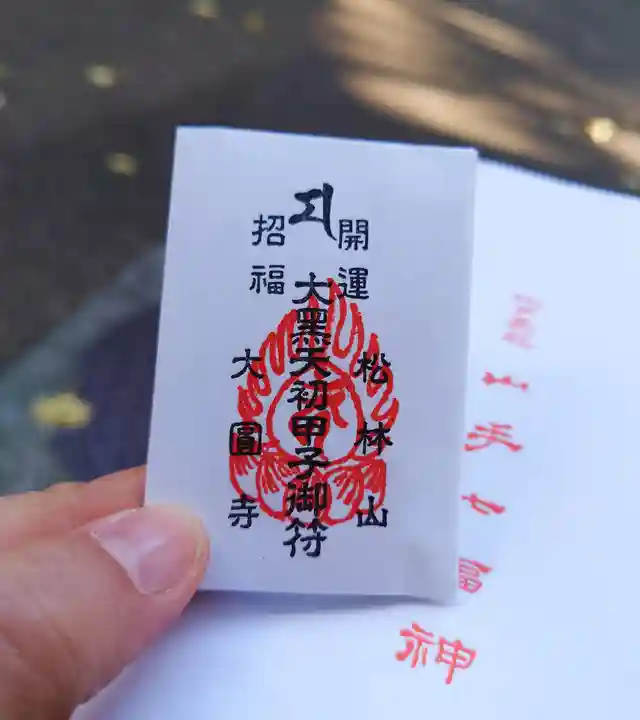 開運
松林山
大黑天初甲子御符
招福
大圓寺
山手七福神